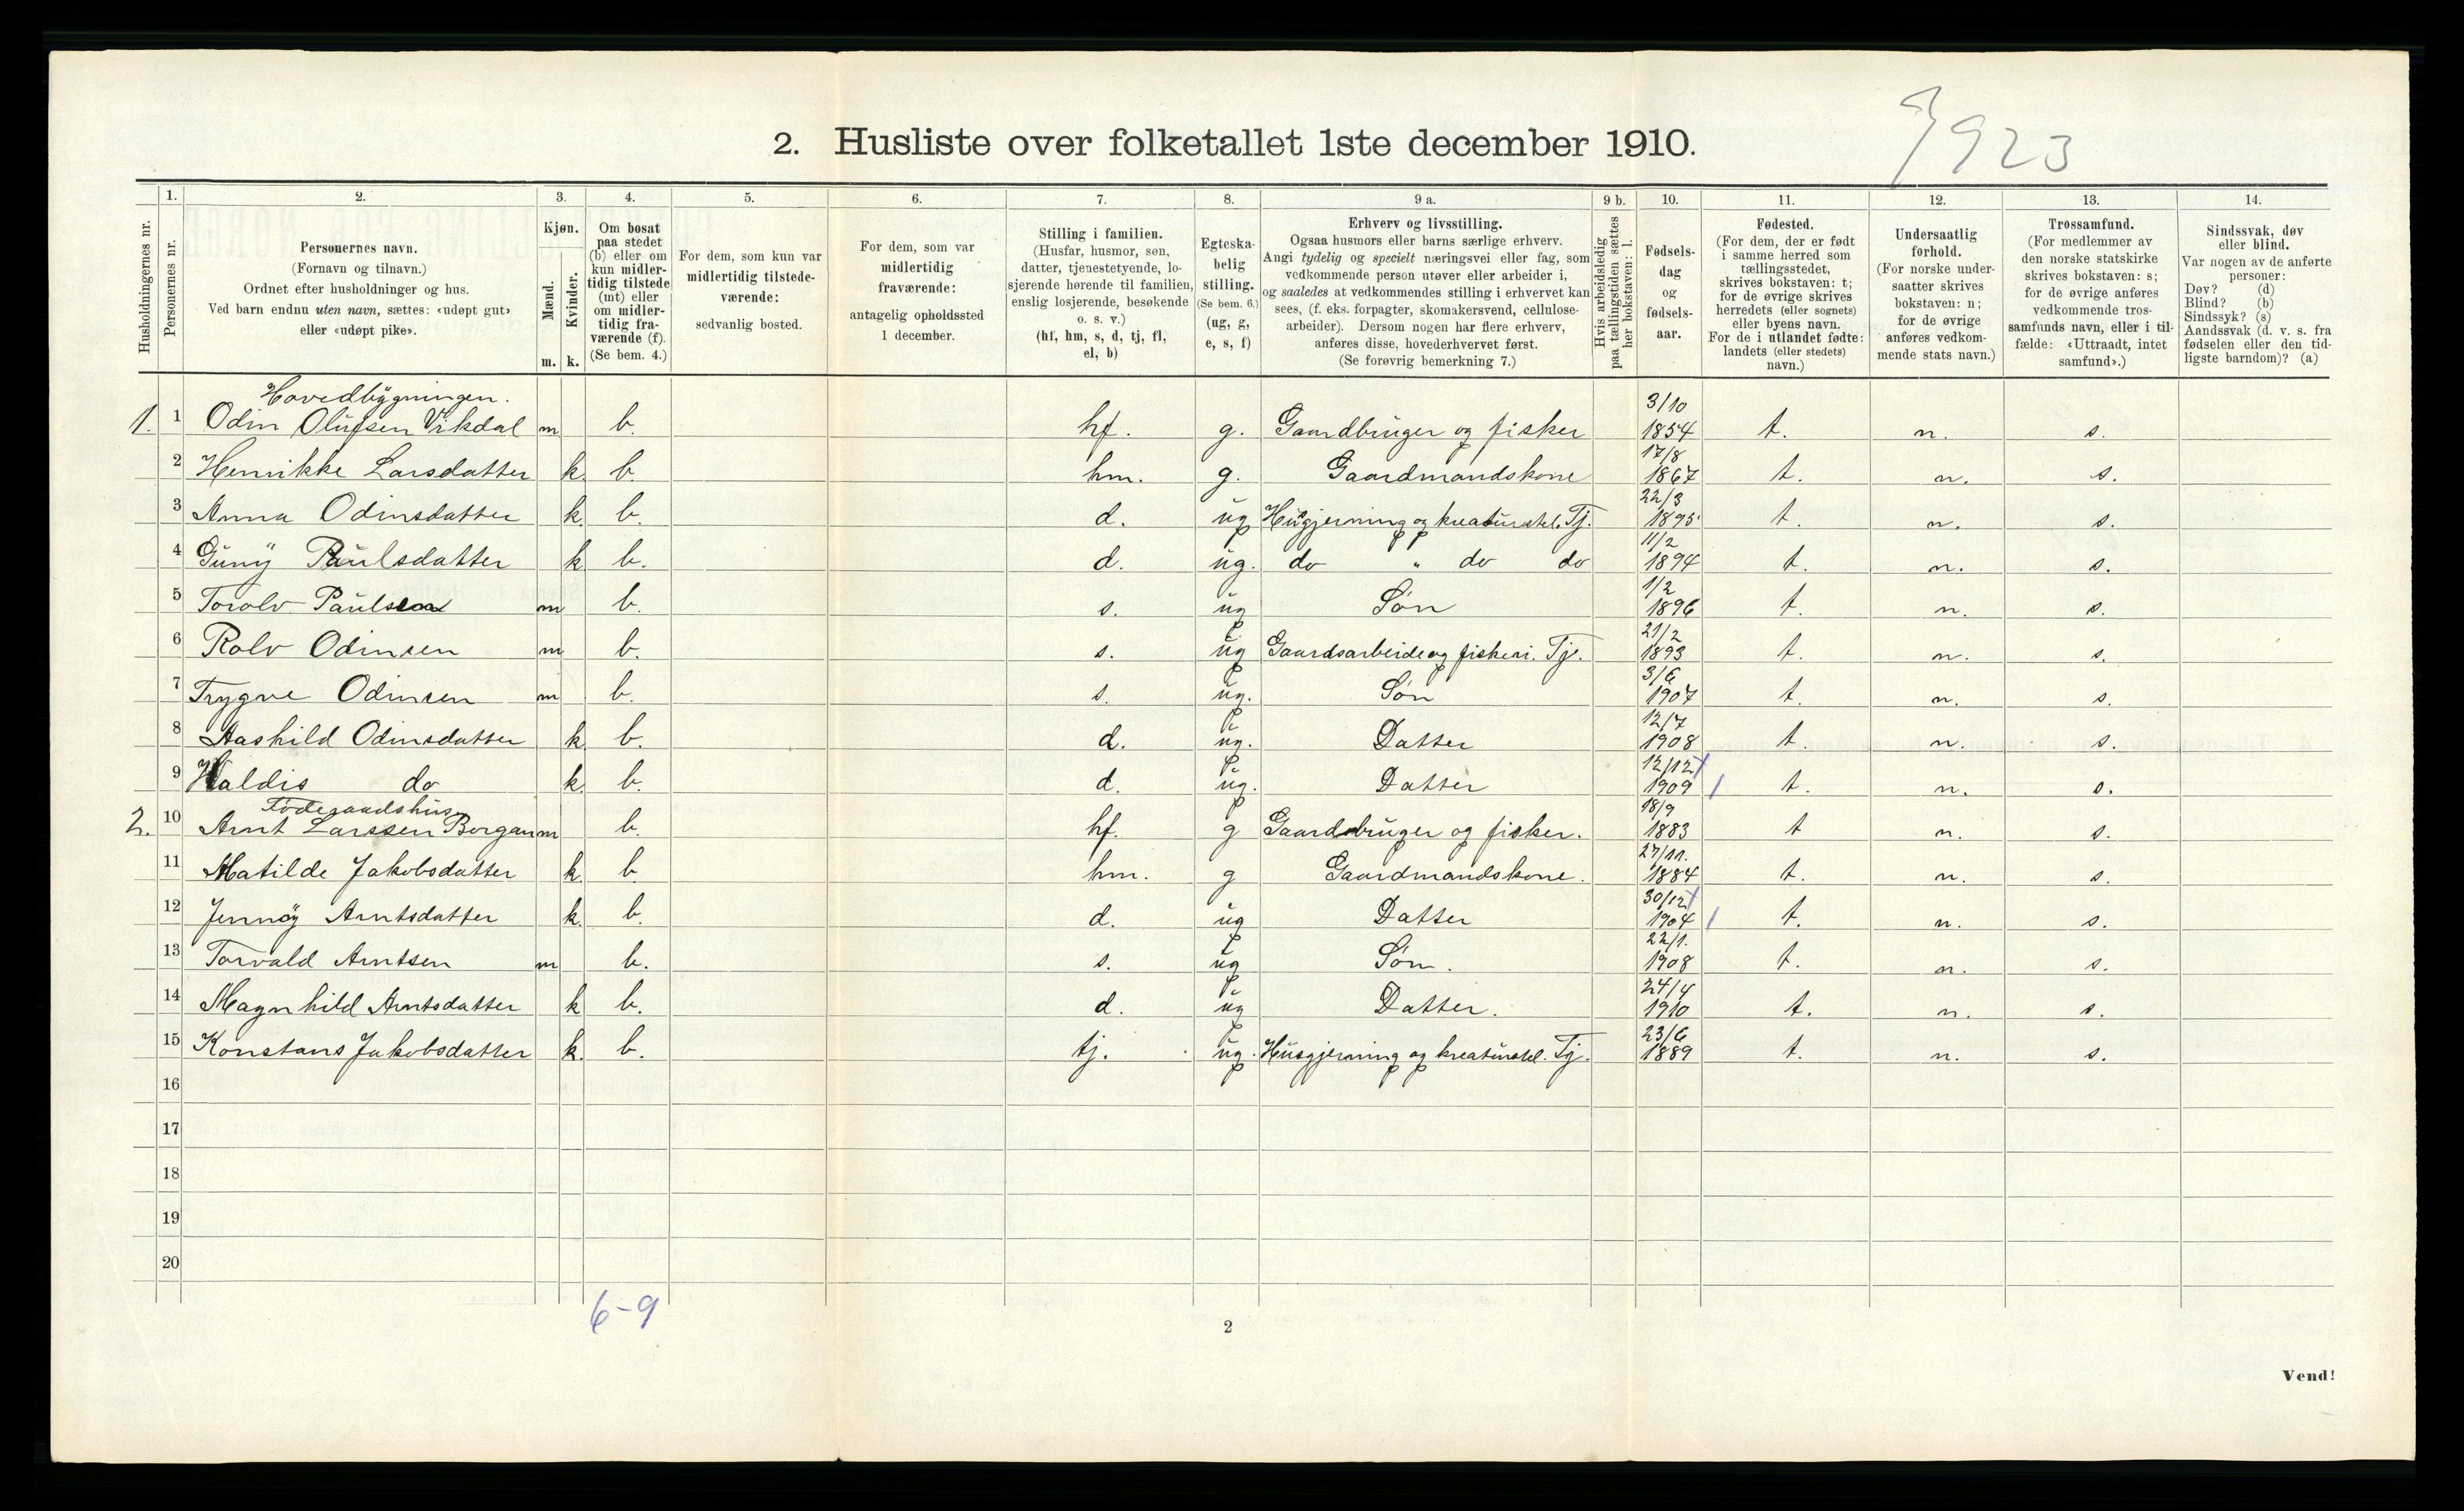 2. Husliste over folketallet 1ste december 1910.
923
Husholdningernes nr.
1.
Personernes nr.
2.
Personernes navn.
(Fornavn og tilnavn.)
Ordnet efter husholdninger og hus.
Ved barn endnu uten navn, sættes: «udøpt gut»
eller «udøpt pike».
3.
Kjøn.
Mænd.
Kvinder.
m. k.
4.
Om bosat
paa stedet
(b) eller om
kun midler-
tidig tilstede
(mt) eller
om midler-
tidig fra-
værende (f).
(Se bem. 4.)
5.
For dem, som kun var
midlertidig tilstede-
værende:
sedvanlig bosted.
6.
For dem, som var
midlertidig
fraværende:
antagelig opholdssted
1 december.
7.
Stilling i familien.
(Husfar, husmor, søn,
datter, tjenestetyende, lo-
sjerende hørende til familien,
enslig losjerende, besøkende
o. s. v.)
(hf, hm, s, d, tj, fl,
el, b)
8.
Egteska-
belig
stilling.
(Se bem. 6.)
(ug, g,
e, s, f)
9 a.
Erhverv og livsstilling.
Ogsaa husmors eller barns særlige erhverv.
Angi tydelig og specielt næringsvei eller fag, som
vedkommende person utøver eller arbeider i,
og saaledes at vedkommendes stilling i erhvervet kan
sees, (f. eks. forpagter, skomakersvend, cellulose-
arbeider). Dersom nogen har flere erhverv,
anføres disse, hovederhvervet først.
(Se forøvrig bemerkning 7.)
9 b.
Hvis arbeidsledig
paa tællingstiden sættes
her bokstaven: l.
10.
Fødsels-
dag
og
fødsels-
aar.
11.
Fødested.
(For dem, der er født
i samme herred som
tællingsstedet,
skrives bokstaven: t;
for de øvrige skrives
herredets (eller sognets)
eller byens navn.
For de i utlandet fødte:
landets (eller stedets)
navn.)
12.
Undersaatlig
forhold.
(For norske under-
saatter skrives
bokstaven: n;
for de øvrige
anføres vedkom-
mende stats navn.)
13.
Trossamfund.
(For medlemmer av
den norske statskirke
skrives bokstaven: s;
for de øvrige anføres
vedkommende tros-
samfunds navn, eller i til-
fælde: «Uttraadt, intet
samfund».)
14.
Sindssvak, døv
eller blind.
Var nogen av de anførte
personer:
Døv? (d)
Blind? (b)
Sindssyk? (s)
Aandssvak (d. v. s. fra
fødselen eller den tid-
ligste barndom)? (a)
Hovedbygningen.
1. 1 Odin Olufsen Vikdal m b. hf. g. Gaardbruger og fisker 3/10 1854 t. n. s.
2 Henrikke Larsdatter k. b. hm. g. Gaardmandskone 17/8 1867 t. n. s.
3 Anna Odinsdatter k. b. d. ug Husgjerning og kreaturstel. Tj. 22/3 1895 t. n. s.
4 Guny Paulsdatter k b. d. ug. do " do do 11/2 1894 t. n. s.
5 Torolv Paulsen m b. s. ug Søn 1/2 1896 t. n. s.
6 Rolv Odinsen m b. s. ug Gaardsarbeide og fiskeri. Tje. 21/2 1893 t. n. s.
7 Trygve Odinsen m b. s. ug. Søn 3/6 1907 t. n. s.
8 Aashild Odinsdatter k. b. d. ug. Datter 12/7 1908 t. n. s.
9 Haldis do k. b. d. ug. Datter 12/12 1909 t. n. s.
Føderaadshus
2. 10 Arnt Larssen Borgan m b. hf. g Gaardbruger og fisker. 18/9 1883 t n. s.
11 Matilde Jakobsdatter k. b. hm. g Gaardmandskone. 27/11. 1884 t. n. s.
12 Jennøy Arntsdatter k. b. d. ug Datter 30/12 1904 t. n. s.
13 Torvald Arntsen m b. s. ug Søn. 22/1. 1908 t. n. s.
14 Magnhild Arntsdatter k b. d. ug Datter. 24/4 1910 t. n. s.
15 Konstans Jakobsdatter k. b. tj. ug. Husgjerning og kreaturstel. Tj. 23/6 1889 t. n. s.
16
17
18
19
20
6-9
2
Vend!